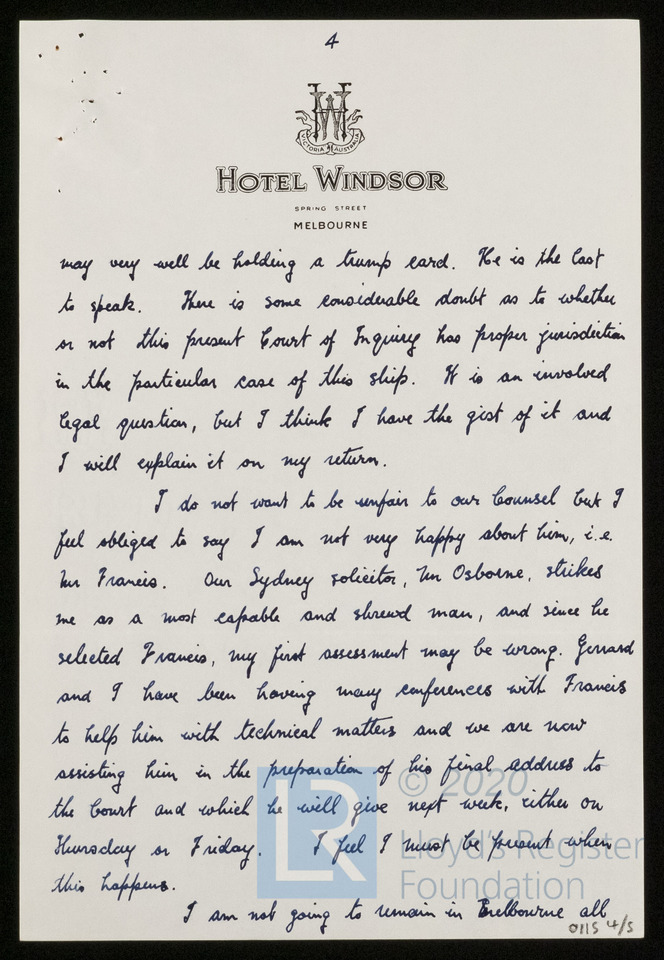 4
VICTORIA AUSTRALIA
HOTEL WINDSOR
SPRING STREET
MELBOURNE
may very well be holding a trump card. He is the last
to speak. There is some considerable doubt as to whether
or not this present Court of Inquiry has proper jurisdiction
in the particular case of this ship. It is an involved
legal question, but I think I have the gist of it and
I will explain it on my return.
I do not want to be unfair to our Counsel but I
feel obliged to say I am not very happy about him, i.e.
Mr Francis. Our Sydney solicitor, Mr Osborne, strikes
me as a most capable and shrewd man, and since he
selected Francis, my first assessment may be wrong. Gerrard
and I have been having many conferences with Francis
to help him with technical matters and we are now
assisting him in the preparation of his final address to
the Court and which he will give next week, either on
Thursday or Friday. I feel I must be present when
this happens.
I am not going to remain in Melbourne all
0115 4/5
LR
© 2020
Lloyd's Register
Foundation